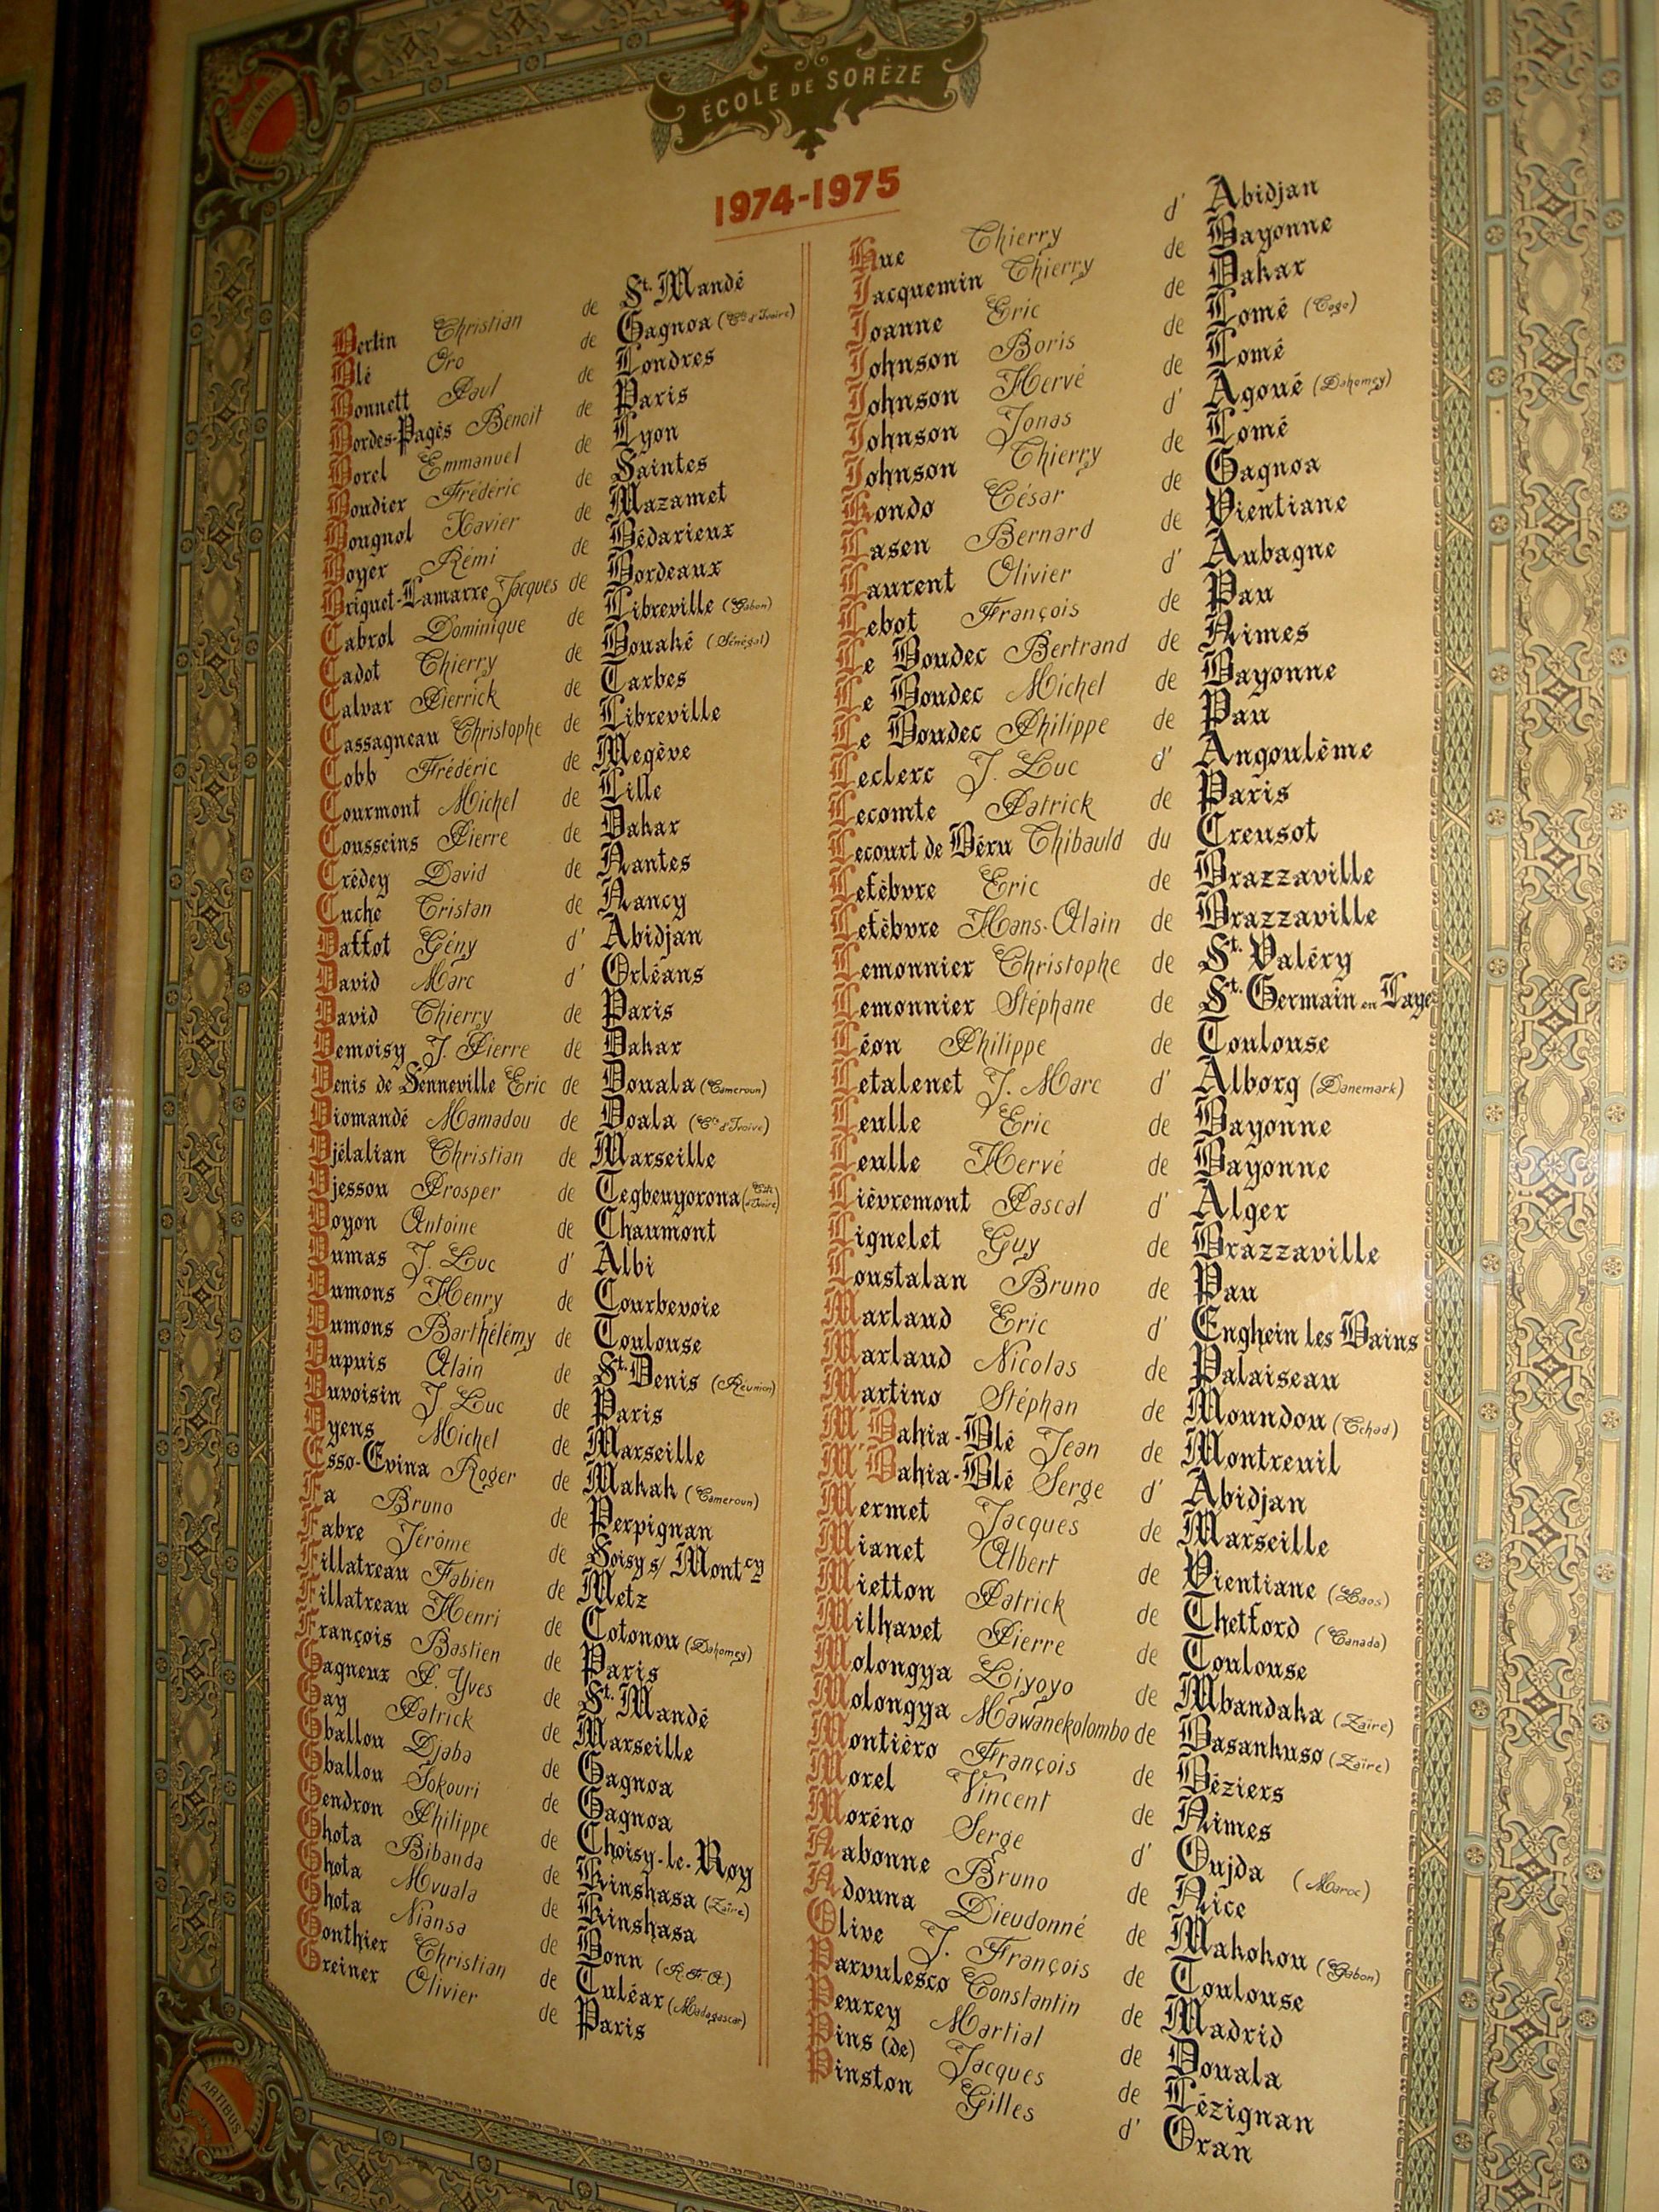 ÉCOLE DE SORÈZE
1974-1975
Bertin Christian de St. Mandé
Blé Oro de Gagnoa (Cte d'Ivoire)
Bonnett Paul de Londres
Bordes-Pagès Benoit de Paris
Borel Emmanuel de Lyon
Boudier Frédéric de Saintes
Bougnol Xavier de Mazamet
Boyer Rémi de Bédarieux
Briquet-Lamarre Jacques de Bordeaux
Cabrol Dominique de Libreville (Gabon)
Cadot Thierry de Bouaké (Sénégal)
Calvar Pierrick de Tarbes
Cassagneau Christophe de Libreville
Cobb Frédéric de Megève
Courmont Michel de Lille
Cousseins Pierre de Dakar
Crédey David de Nantes
Cuche Tristan de Nancy
Daffot Gény d' Abidjan
David Marc d' Orléans
David Thierry de Paris
Demoisy J. Pierre de Dakar
Denis de Senneville Eric de Douala (Cameroun)
Diomandé Mamadou de Doala (Cte d'Ivoire)
Djélalian Christian de Marseille
Djessou Prosper de Tegbeuyorona (Cte d'Ivoire)
Doyon Antoine de Chaumont
Dumas J. Luc d' Albi
Dumons Henry de Courbevoie
Dumons Barthélémy de Toulouse
Dupuis Alain de St. Denis (Réunion)
Duvoisin J. Luc de Paris
Dyens Michel de Marseille
Esso-Evina Roger de Makak (Cameroun)
Fa Bruno de Perpignan
Fabre Jérôme de Soisy s/ Montcy
Fillatreau Fabien de Metz
Fillatreau Henri de Cotonou (Dahomey)
François Bastien de Paris
Gagneux P. Yves de St. Mandé
Gay Patrick de Marseille
Gballou Djaba de Gagnoa
Gballou Jokouri de Gagnoa
Gendron Philippe de Choisy-le-Roy
Ghota Bibanda de Kinshasa (Zaïre)
Ghota Mvuala de Kinshasa
Ghota Niansa de Bonn (R.F.A)
Gonthier Christian de Tuléar (Madagascar)
Greiner Olivier de Paris
Hue Thierry d' Abidjan
Jacquemin Thierry de Bayonne
Joanne Eric de Dakar
Johnson Boris de Lomé (Togo)
Johnson Hervé de Lomé
Johnson Jonas d' Agoué (Dahomey)
Johnson Thierry de Lomé
Kondo César de Gagnoa
Lasen Bernard de Vientiane
Laurent Olivier d' Aubagne
Lebot François de Pau
Le Boudec Bertrand de Nimes
Le Boudec Michel de Bayonne
Le Boudec Philippe de Pau
Leclerc J. Luc d' Angoulême
Lecomte Patrick de Paris
Lecourt de Béru Thibauld du Creusot
Lefèbvre Eric de Brazzaville
Lefèbvre Hans-Alain de Brazzaville
Lemonnier Christophe de St. Valéry
Lemonnier Stéphane de St. Germain en Laye
Léon Philippe de Toulouse
Letalenet J. Marc d' Alborg (Danemark)
Leulle Eric de Bayonne
Leulle Hervé de Bayonne
Lièvremont Pascal d' Alger
Lignelet Guy de Brazzaville
Loustalan Bruno de Pau
Marlaud Eric d' Enghein les Bains
Marlaud Nicolas de Palaiseau
Martino Stéphan de Moundou (Tchad)
M'Bahia-Blé Jean de Montreuil
M'Bahia-Blé Serge d' Abidjan
Mermet Jacques de Marseille
Mianet Albert de Vientiane (Laos)
Mietton Patrick de Thetford (Canada)
Milhavet Pierre de Toulouse
Molongya Liyoyo de Mbandaka (Zaïre)
Molongya Mawanekolombo de Basankuso (Zaïre)
Montièro François de Béziers
Morel Vincent de Nimes
Moréno Serge d' Oujda (Maroc)
Nabonne Bruno de Nice
Ndouna Dieudonné de Makokou (Gabon)
Olive J. François de Toulouse
Parvulesco Constantin de Madrid
Peurey Martial de Douala
Pins (de) Jacques de Lézignan
Pinston Gilles d' Oran
ARTIBUS